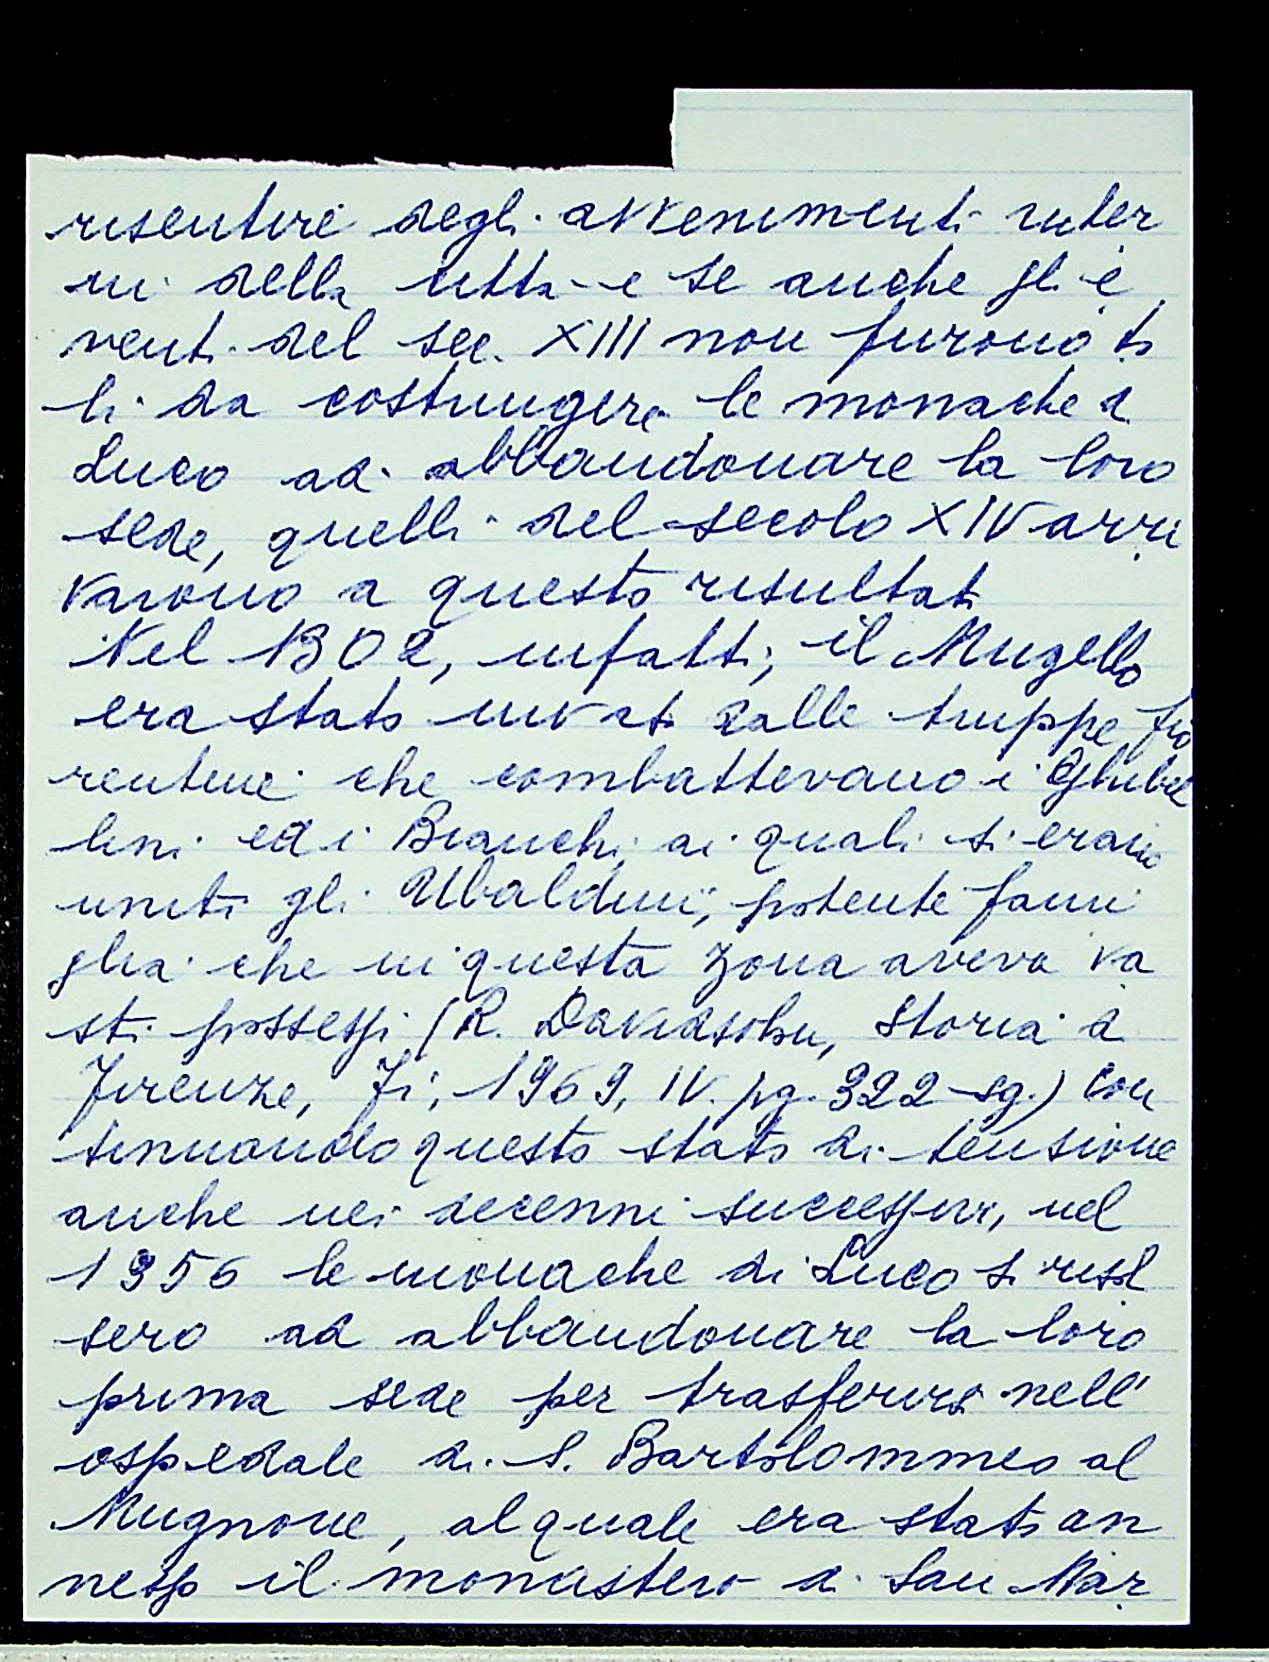 risentire degli avvenimenti inter
ni della città e se anche gli e
venti del sec. XIII non furono ta
li da costringere le monache di
Luco ad abbandonare la loro
sede, quelli del secolo XIV arri
varono a questo risultato
Nel 1302, infatti, il Mugello
era stato invato dalle truppe fio
rentine che combattevano i Ghibel
lini ed i Bianchi, ai quali si erano
uniti gli Ubaldini, potente fami
glia che in questa zona aveva va
sti possessi (R. Davidsohn, Storia di
Firenze, Fi, 1969, IV. pg. 322-sg.) Con
tinuando questo stato di tensione
anche nei decenni successivi, nel
1356 le monache di Luco si risol
sero ad abbandonare la loro
prima sede per trasferirsi nell'
ospedale di S. Bartolommeo al
Mugnone, al quale era stato an
nesso il monastero di San Mar